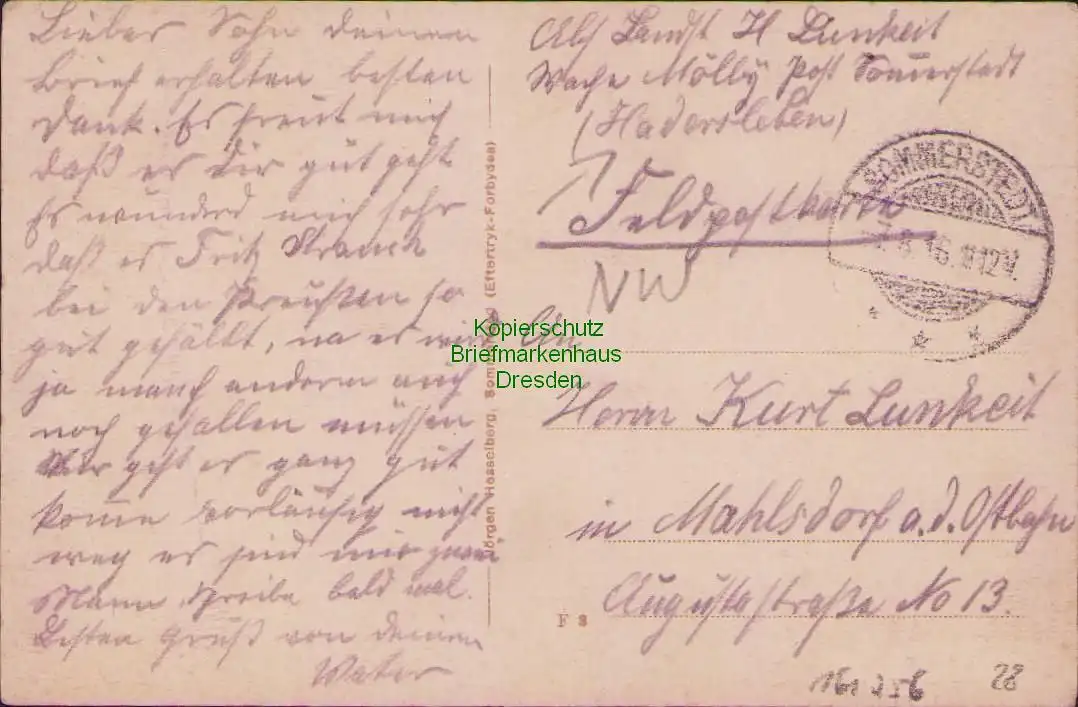 Lieber Sohn deinen
Brief erhalten besten
Dank. Es freut mich
daß es dir gut geht
Es wunderd mich sehr
daß es Fritz Strauch
bei den Preußen so
gut gefällt, na es wird
ja manch anderm auch
noch gefallen müssen
Mir geht es ganz gut
komme vorläufig nicht
weg es sind nur zwei
Mann, schreibe bald mal.
Besten Gruß von deinem
Vater
Jörgen Hesselberg, Sommerstedt (Eftertryk Forbydes)
Abs Landst H Lunkeit
Wache Mölby Post Sommerstedt
(Hadersleben)
Feldpostkarte
SOMMERSTEDT
7.8.16. 12V.
NW
An
Kopierschutz
Briefmarkenhaus
Dresden
Herrn Kurt Lunkeit
in Mahlsdorf a.d. Ostbahn
Augustastraße No 13.
F 8
28